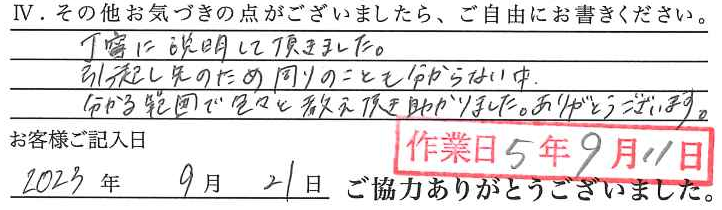 Ⅳ．その他お気づきの点がございましたら、ご自由にお書きください。
丁寧に説明して頂きました。
引越し先のため周りのことも分からない中、
分かる範囲で色々と教え頂き助かりました。ありがとうございます。
お客様ご記入日
作業日5年9月11日
2023年 9月 21日 ご協力ありがとうございました。